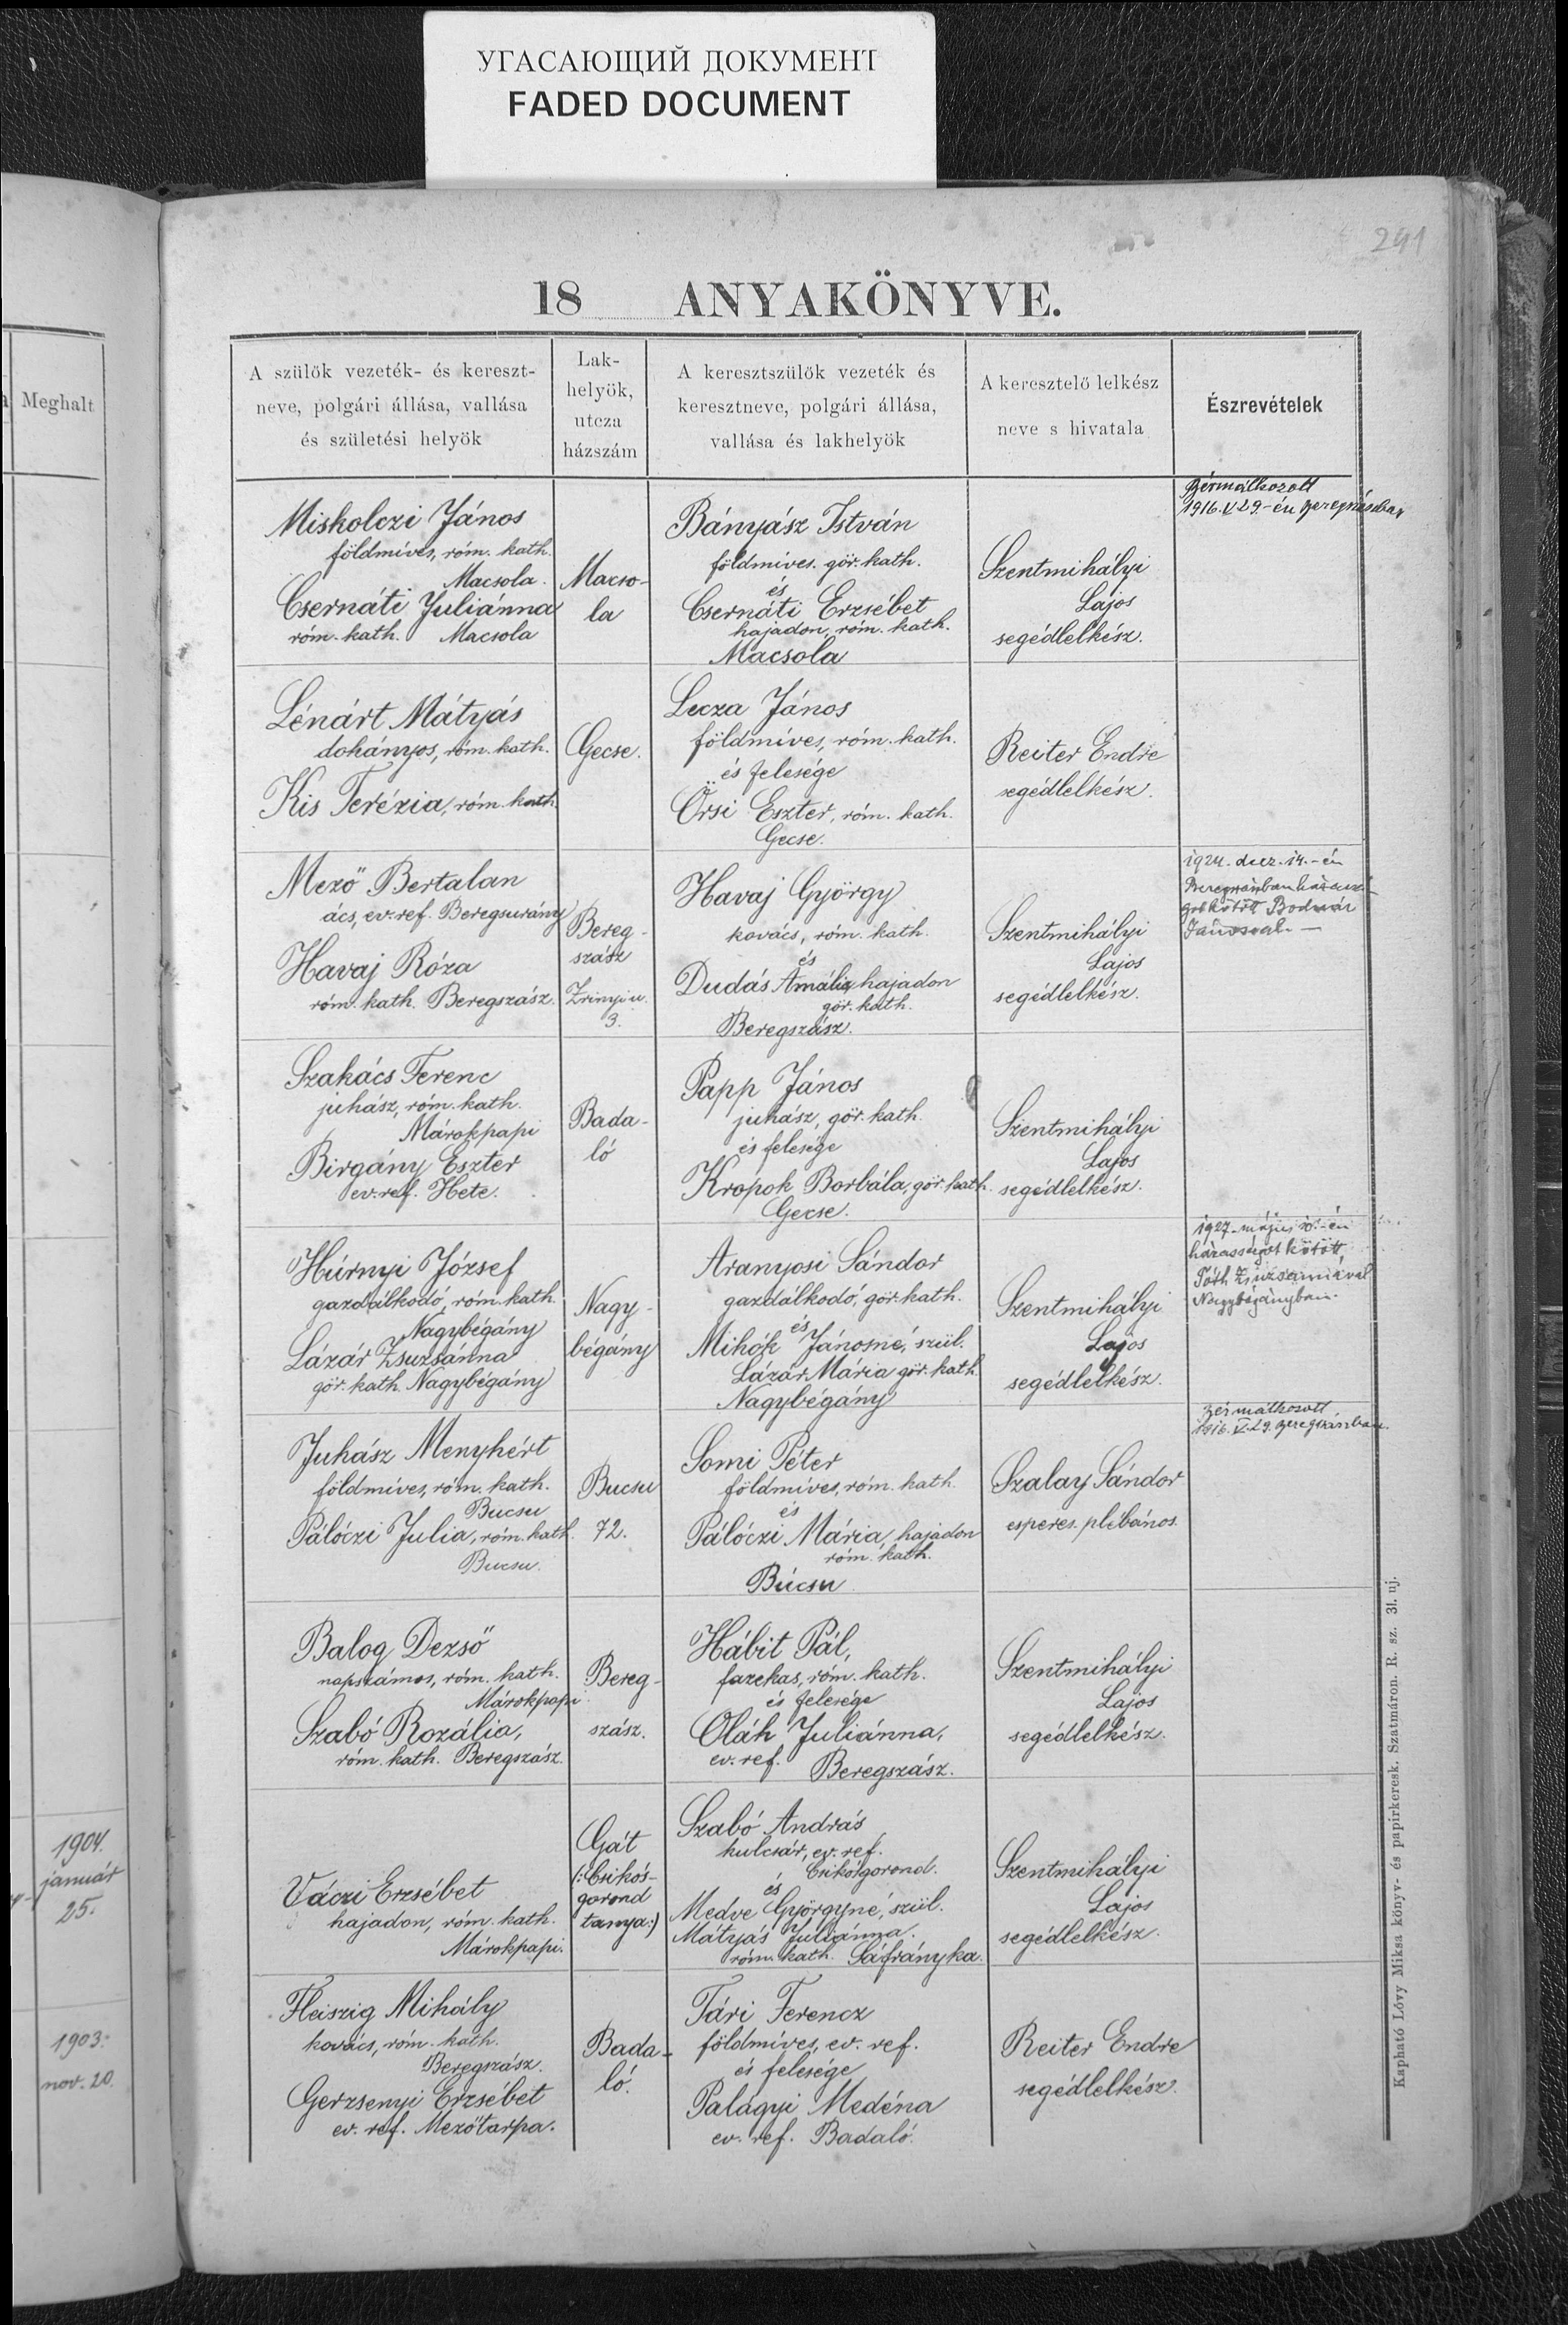 УГАСАЮЩИЙ ДОКУМЕНТ
FADED DOCUMENT
241
18 ANYAKÖNYVE.
Meghalt
A szülők vezeték- és kereszt-
neve, polgári állása, vallása
és születési helyök
Lak-
helyök,
utcza
házszám
A keresztszülők vezeték és
keresztneve, polgári állása,
vallása és lakhelyök
A keresztelő lelkész
neve s hivatala
Észrevételek
Miskolczi János
földmíves, róm. kath.
Macsola.
Csernáti Juliánna
róm. kath. Macsola
Macso-
la
Bányász István
földmíves. gör. kath.
és
Csernáti Erzsébet
hajadon, róm. kath.
Macsola
Szentmihályi
Lajos
segédlelkész.
Bérmálkozott
1916. V. 29.-én Beregszászban
Lénárt Mátyás
dohányos, róm. kath.
Kis Terézia, róm. kath.
Gecse.
Lecza János
földmíves, róm. kath.
és felesége
Örsi Eszter, róm. kath.
Gecse.
Reiter Endre
segédlelkész.
Mező Bertalan
ács, ev. ref. Beregsurány
Havaj Róza
róm. kath. Beregszász.
Bereg-
szász
Zrinyi u.
3.
Havaj György
kovács, róm. kath.
és
Dudás Amália hajadon
gör. kath.
Beregszász.
Szentmihályi
Lajos
segédlelkész.
1924. decz. 14.-én
Beregszászban házassá-
got kötött Bodnár
Jánossal. —
Szakács Ferenc
juhász, róm. kath.
Márokpapi
Birgány Eszter
ev. ref. Hete.
Bada-
ló
Papp János
juhász, gör. kath.
és felesége
Kropok Borbála, gör. kath.
Gecse.
Szentmihályi
Lajos
segédlelkész.
Húrnyi József
gazdálkodó, róm. kath.
Nagybégány
Lázár Zsuzsánna
gör. kath. Nagybégány
Nagy-
bégány
Aranyosi Sándor
gazdálkodó, gör. kath.
és
Mihók Jánosné, szül.
Lázár Mária gör. kath.
Nagybégány
Szentmihályi
Lajos
segédlelkész.
1927. május -én
házasságot kötött
Tóth Zsuzsannával
Nagybégányban.
Juhász Menyhért
földmíves, róm. kath.
Bucsu
Pálóczi Julia, róm. kath.
Bucsu.
Bucsu
72.
Somi Péter
földmíves, róm. kath.
és
Pálóczi Mária, hajadon
róm. kath.
Búcsu
Szalay Sándor
esperes. plébános.
Bérmálkozott
1916. V. 29. Beregszászban.
Balog Dezső
napszámos, róm. kath.
Márokpapi
Szabó Rozália,
róm. kath. Beregszász.
Bereg-
szász.
Hábit Pál,
fazekas, róm. kath.
és felesége
Oláh Juliánna,
ev. ref. Beregszász.
Szentmihályi
Lajos
segédlelkész.
Váczi Erzsébet
hajadon, róm. kath.
Márokpapi.
Gát
(:Csikós-
gorond
tanya:)
Szabó András
kulcsár, ev. ref.
Csikósgorond.
és
Medve Györgyné, szül.
Mátyás Juliánna.
róm. kath. Sáfrányka.
Szentmihályi
Lajos
segédlelkész.
1904.
január
25.
Fleiszig Mihály
kovács, róm. kath.
Beregszász.
Gerzsenyi Erzsébet
ev. ref. Mezőtarpa.
Bada-
ló.
Tári Ferencz
földmíves, ev. ref.
és felesége
Palágyi Medéna
ev. ref. Badaló.
Reiter Endre
segédlelkész.
1903.
nov. 20.
Kapható Lővy Miksa könyv- és papirkeresk. Szatmáron. R. sz. 31. uj.